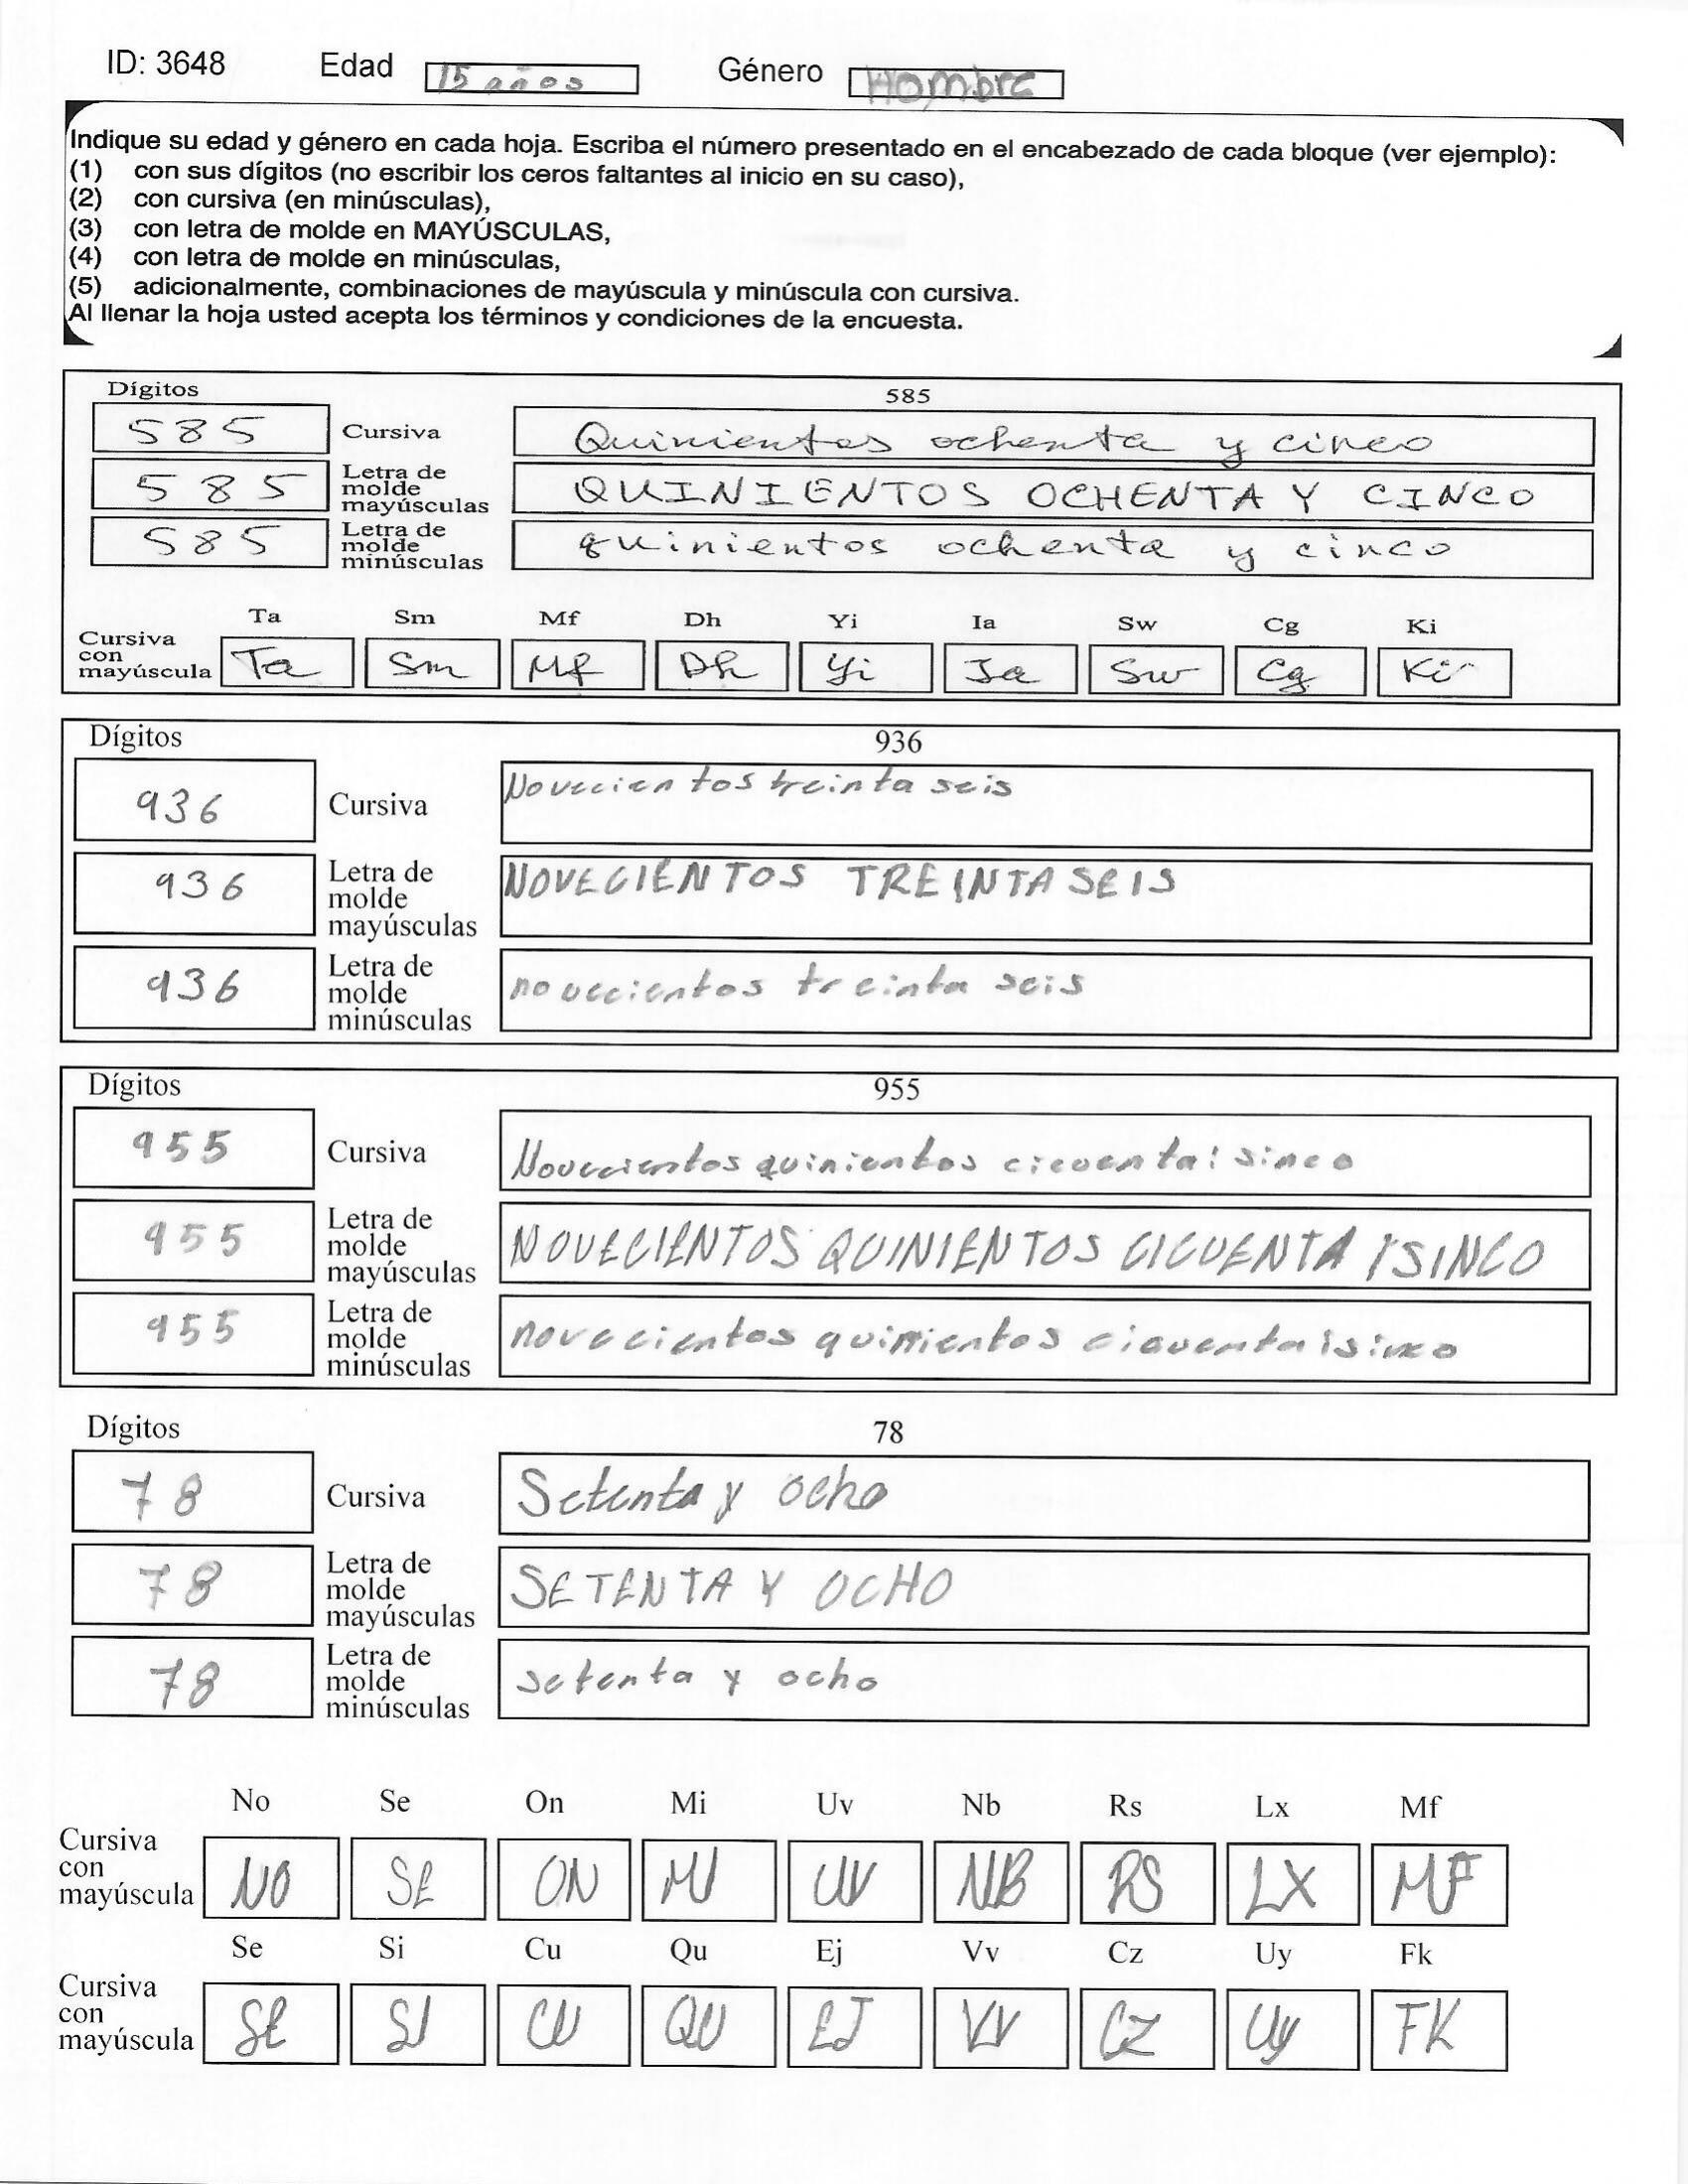 ID: 3648 Edad 15 años Género Hombre
Indique su edad y género en cada hoja. Escriba el número presentado en el encabezado de cada bloque (ver ejemplo):
(1) con sus dígitos (no escribir los ceros faltantes al inicio en su caso),
(2) con cursiva (en minúsculas),
(3) con letra de molde en MAYÚSCULAS,
(4) con letra de molde en minúsculas,
(5) adicionalmente, combinaciones de mayúscula y minúscula con cursiva.
Al llenar la hoja usted acepta los términos y condiciones de la encuesta.
Dígitos 585
585 Cursiva Quinientos ochenta y cinco
585 Letra de molde mayúsculas QUINIENTOS OCHENTA Y CINCO
585 Letra de molde minúsculas quinientos ochenta y cinco
Ta Sm Mf Dh Yi Ia Sw Cg Ki
Cursiva con mayúscula Ta Sm Mf Dh Yi Ia Sw Cg Ki
Dígitos 936
936 Cursiva Novecientos treinta seis
936 Letra de molde mayúsculas NOVECIENTOS TREINTA SEIS
936 Letra de molde minúsculas novecientos treinta seis
Dígitos 955
955 Cursiva Novecientos quinientos cicuenta i sinco
955 Letra de molde mayúsculas NOVECIENTOS QUINIENTOS CICUENTA ISINCO
955 Letra de molde minúsculas novecientos quinientos
Dígitos 78
78 Cursiva Setenta y ocho
78 Letra de molde mayúsculas SETENTA Y OCHO
78 Letra de molde minúsculas setenta y ocho
No Se On Mi Uv Nb Rs Lx Mf
Cursiva con mayúscula NO SE ON MI UV NB RS LX MF
Se Si Cu Qu Ej Vv Cz Uy Fk
Cursiva con mayúscula SE SI CU QU EJ VV CZ Uy FK